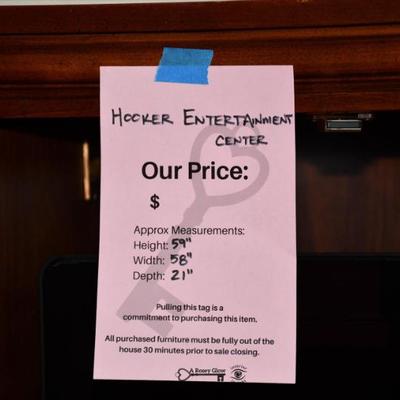 HOOKER ENTERTAINMENT
CENTER
Our Price:
$
Approx Measurements:
Height: 59"
Width: 58"
Depth: 21"
Pulling this tag is a
commitment to purchasing this item.
All purchased furniture must be fully out of the
house 30 minutes prior to sale closing.
A Rosey Glow